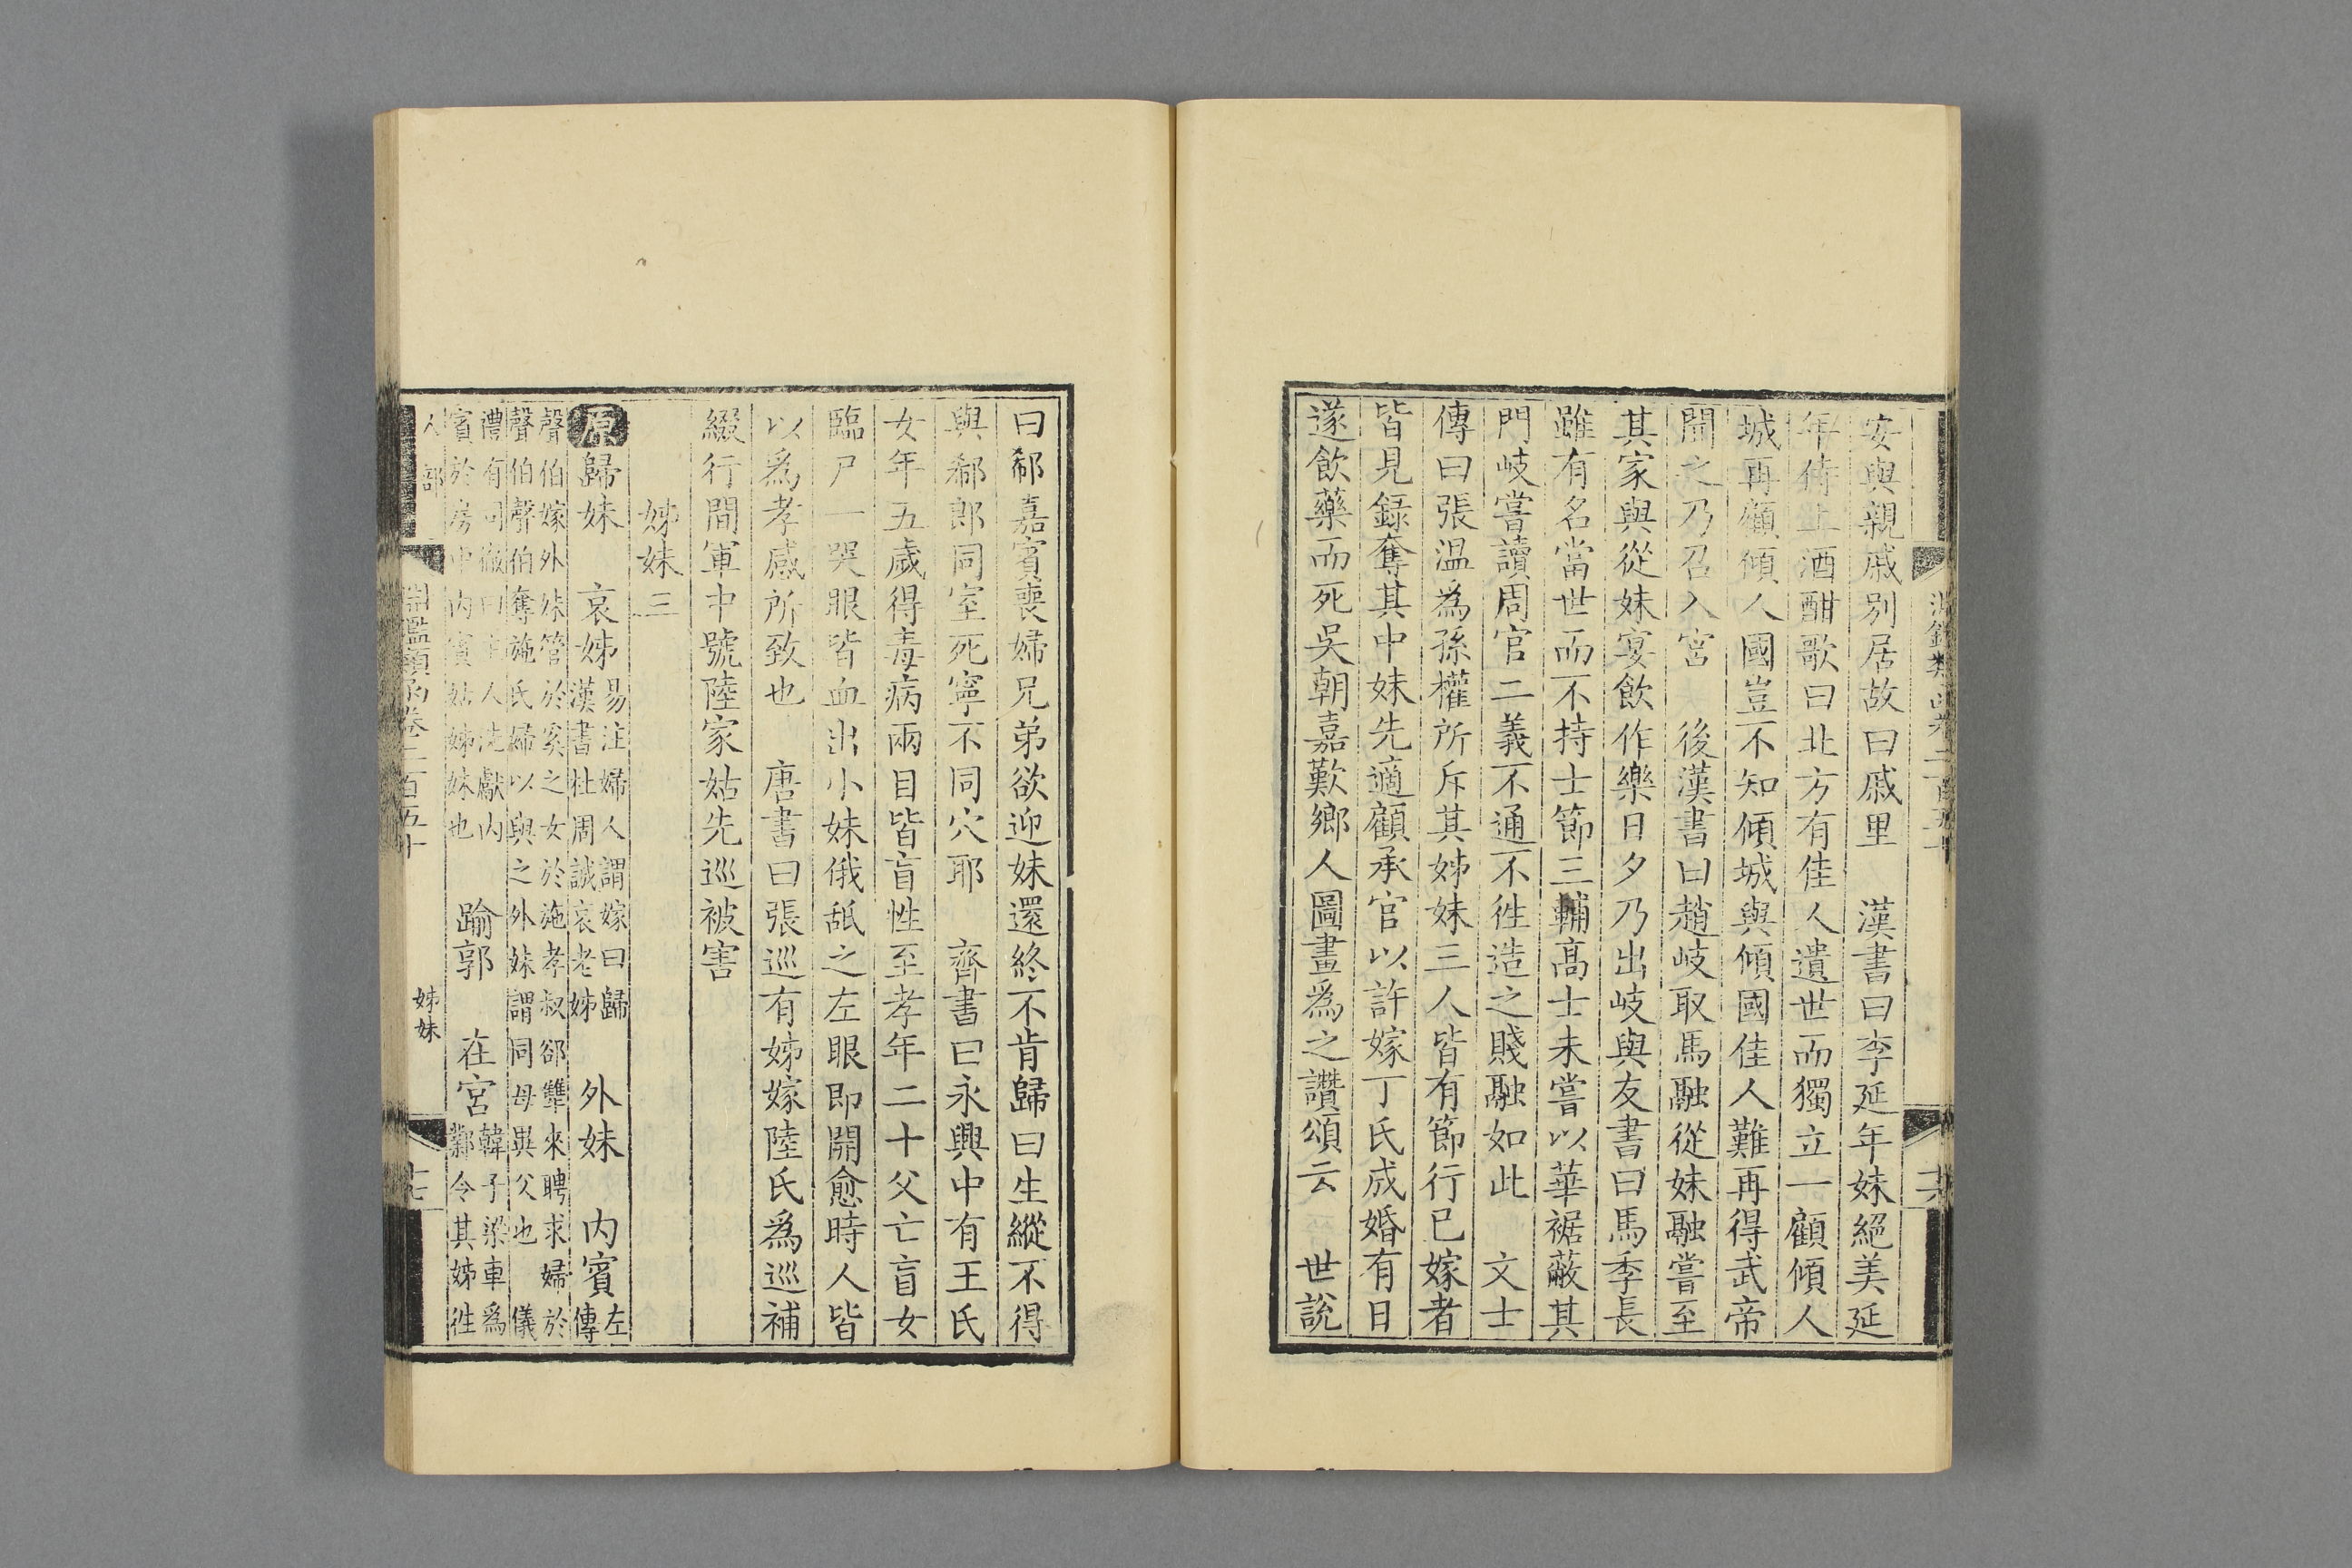 淵鑑類函卷二百五十
安與親戚別居故曰戚里　漢書曰李延年妹絕美延
年侍上酒酣歌曰北方有佳人遺世而獨立一顧傾人
城再顧傾人國豈不知傾城與傾國佳人難再得武帝
聞之乃召入宮　後漢書曰趙岐取馬融從妹融嘗至
其家與從妹宴飲作樂日夕乃出岐與友書曰馬季長
雖有名當世而不持士節三輔高士未嘗以華裾蔽其
門岐嘗讀周官二義不通不徃造之賤融如此　文士
傳曰張温為孫權所斥其姊妹三人皆有節行已嫁者
皆見録奪其中妹先適顧承官以許嫁丁氏成婚有日
遂飲藥而死吳朝嘉歎鄉人圖畫爲之讚頌云　世說
曰郗嘉賓喪婦兄弟欲迎妹還終不肯歸曰生縱不得
與郗郎同室死寧不同穴耶　齊書曰永興中有王氏
女年五歲得毒病兩目皆盲性至孝年二十父亡盲女
臨尸一哭眼皆血出小妹俄舐之左眼即開愈時人皆
以爲孝感所致也　唐書曰張巡有姊嫁陸氏爲巡補
綴行間軍中號陸家姑先巡被害
姊妹三
原歸妹　哀姊易注婦人謂嫁曰歸漢書杜周誡哀老姊　外妹　内賓左傳
聲伯嫁外妹管於奚之女於施孝叔郤犨來聘求婦於
聲伯聲伯奪施氏婦以與之外妹謂同母異父也　儀
禮有司徹曰主人洗獻内
賓於房中内賓姑姊妹也　踰郭　在宮韓子梁車爲鄴令其姊徃
人部　淵鑑類函卷二百五十　姊妹　十七